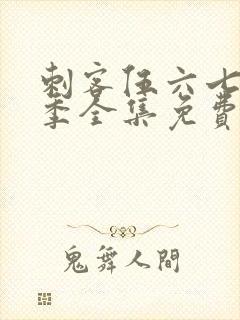 刺客伍六七
季全集免費
鬼舞人間